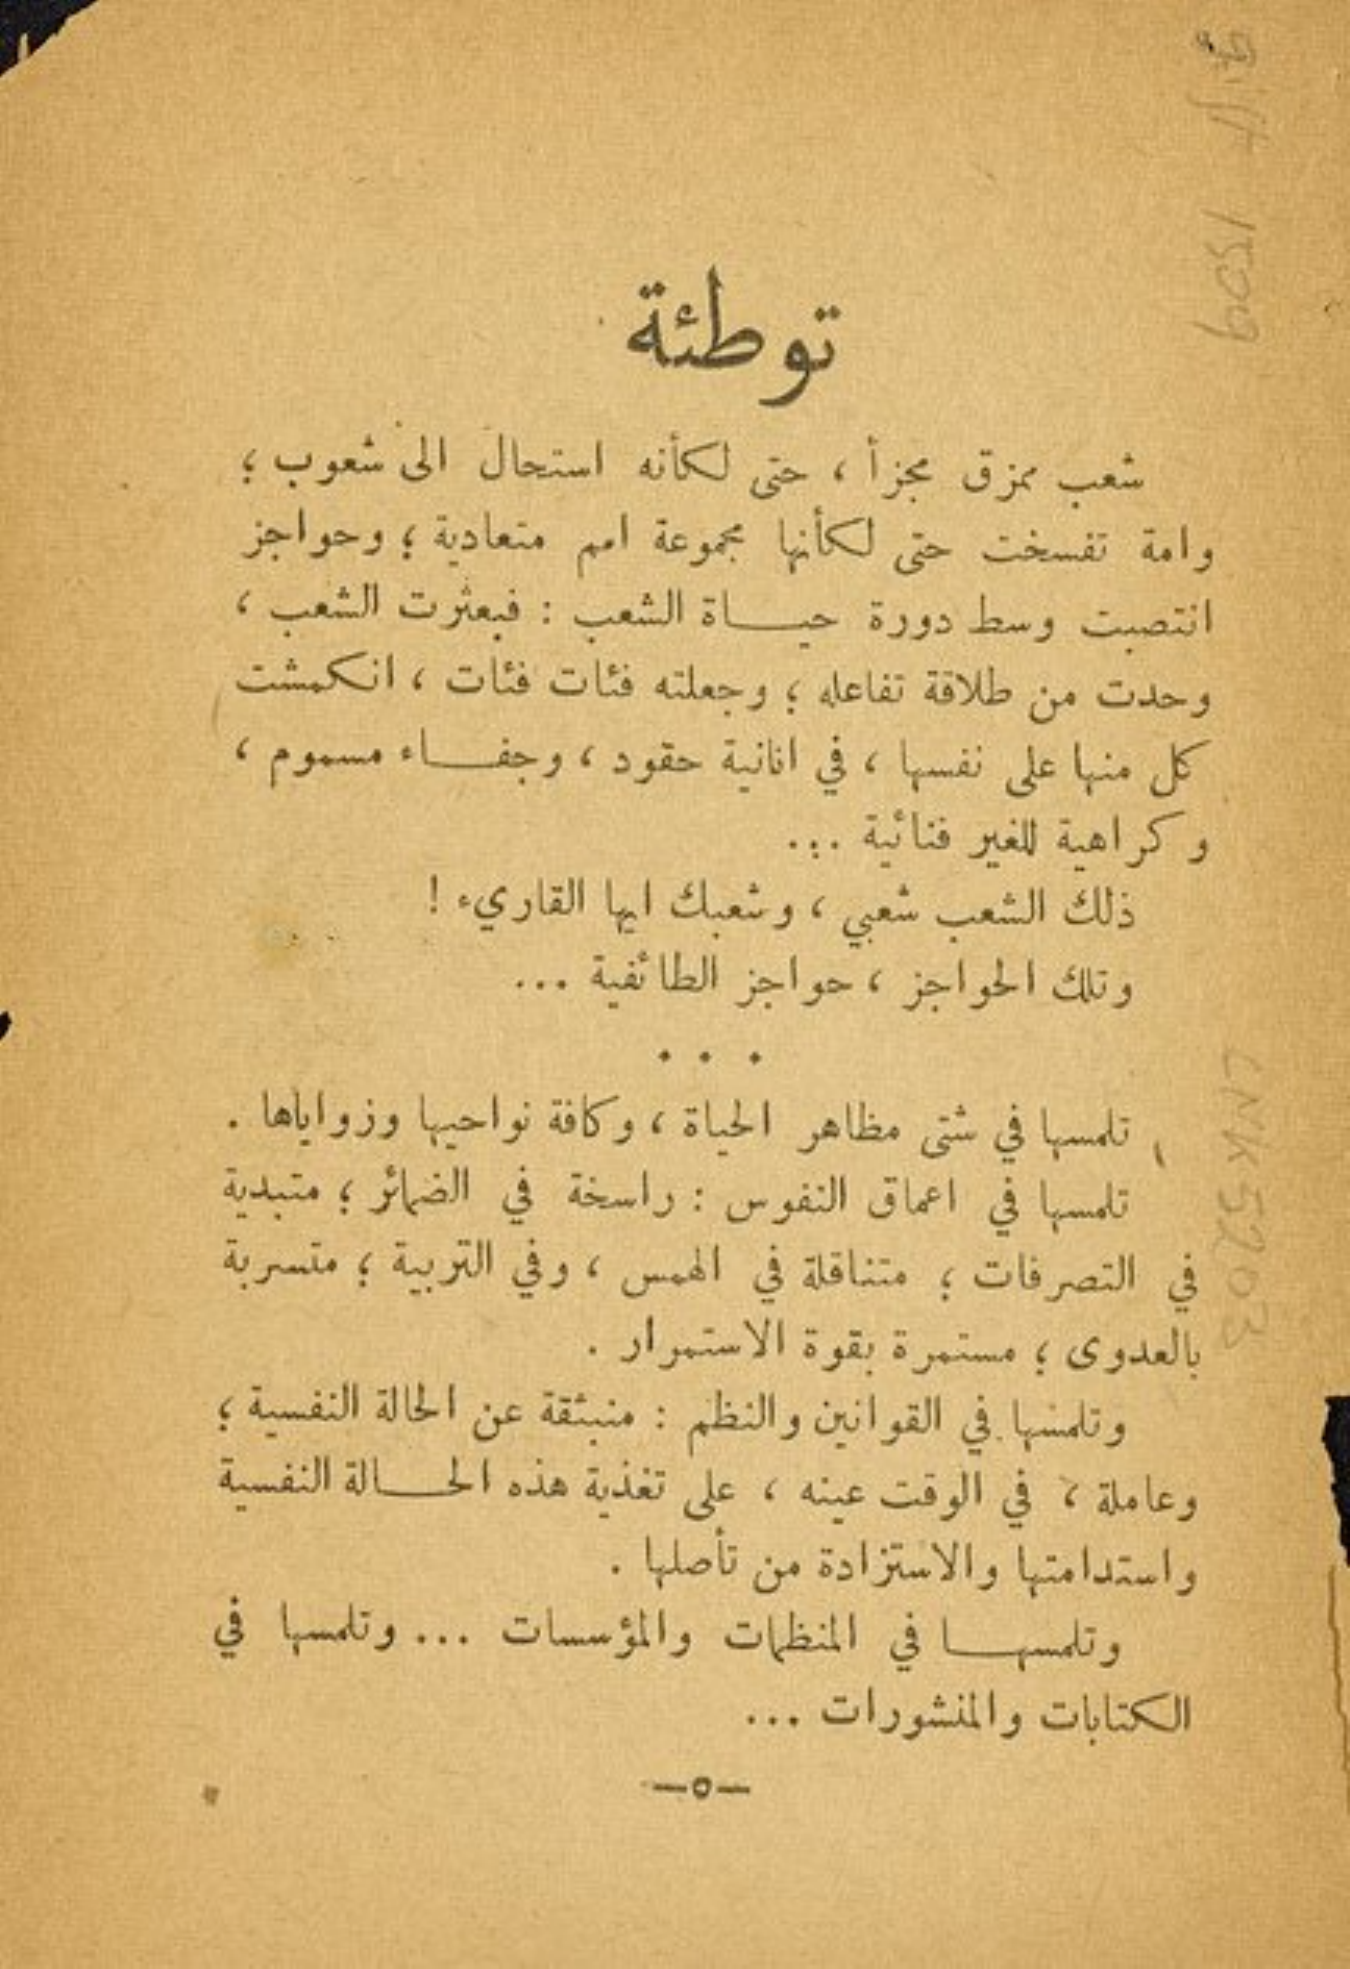 توطئة
شعب ممزق مجزأ ، حتى لكأنه استحال الى شعوب ؛
وامة تفسخت حتى لكأنها مجموعة امم متعادية ؛ وحواجز
انتصبت وسط دورة حيـــاة الشعب : فبعثرت الشعب ،
وحدت من طلاقة تفاعله ؛ وجعلته فئات فئات ، انكمشت
كل منها على نفسها ، في انانية حقود ، وجفـــاء مسموم ،
وكراهية للغير فنائية ...
ذلك الشعب شعبي ، وشعبك ايها القاريء !
وتلك الحواجز ، حواجز الطائفية ...
• • •
تلمسها في شتى مظاهر الحياة ، وكافة نواحيها وزواياها .
تلمسها في اعماق النفوس : راسخة في الضمائر ؛ متبدية
في التصرفات ؛ متناقلة في الهمس ، وفي التربية ؛ متسربة
بالعدوى ؛ مستمرة بقوة الاستمرار .
وتلمسها في القوانين والنظم : منبثقة عن الحالة النفسية ؛
وعاملة ، في الوقت عينه ، على تغذية هذه الحـــالة النفسية
واستدامتها والاستزادة من تأصلها .
وتلمسهـــا في المنظمات والمؤسسات ... وتلمسها في
الكتابات والمنشورات ...